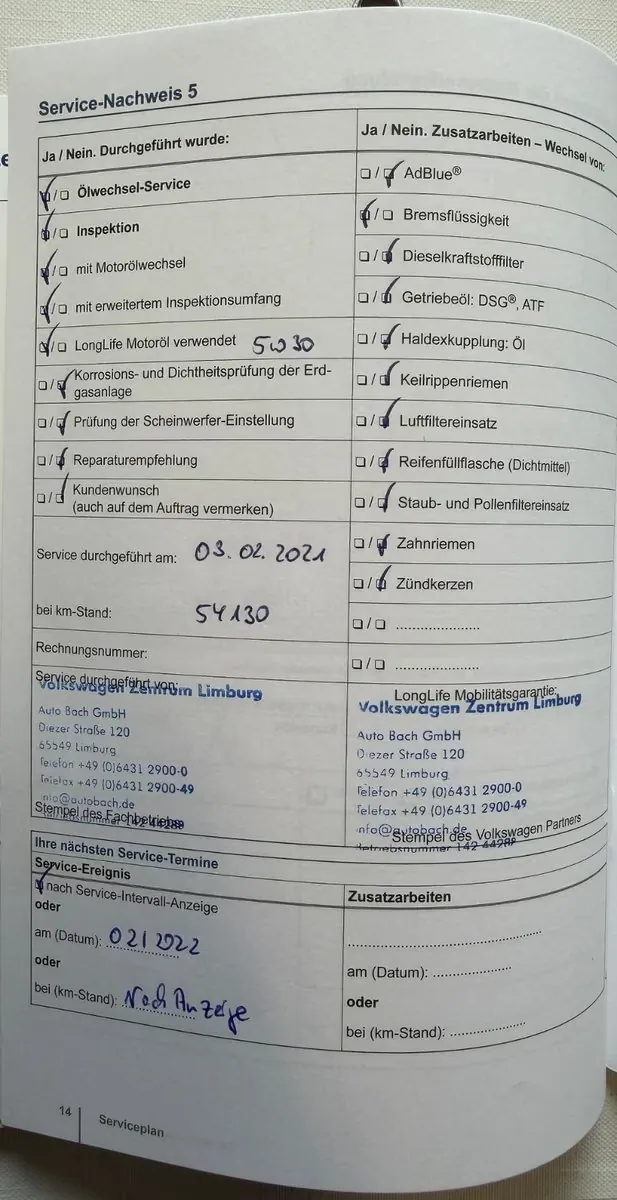 Service-Nachweis 5
Ja / Nein. Durchgeführt wurde:
Ölwechsel-Service
Inspektion
mit Motorölwechsel
mit erweitertem Inspektionsumfang
LongLife Motoröl verwendet 5W30
Korrosions- und Dichtheitsprüfung der Erd-
gasanlage
Prüfung der Scheinwerfer-Einstellung
Reparaturempfehlung
Kundenwunsch
(auch auf dem Auftrag vermerken)
Service durchgeführt am: 03.02.2021
bei km-Stand: 54130
Rechnungsnummer:
Service durchgeführt von:
Volkswagen Zentrum Limburg
Auto Bach GmbH
Diezer Straße 120
65549 Limburg
Telefon +49 (0)6431 2900-0
Telefax +49 (0)6431 2900-49
info@autobach.de
Stempel des Fachbetriebs
Betriebsnummer 142 44288
Ja / Nein. Zusatzarbeiten – Wechsel von:
AdBlue®
Bremsflüssigkeit
Dieselkraftstofffilter
Getriebeöl: DSG®, ATF
Haldexkupplung: Öl
Keilrippenriemen
Luftfiltereinsatz
Reifenfüllflasche (Dichtmittel)
Staub- und Pollenfiltereinsatz
Zahnriemen
Zündkerzen
/ ......................
/ ......................
LongLife Mobilitätsgarantie:
Volkswagen Zentrum Limburg
Auto Bach GmbH
Diezer Straße 120
65549 Limburg
Telefon +49 (0)6431 2900-0
Telefax +49 (0)6431 2900-49
info@autobach.de
Stempel des Volkswagen Partners
Betriebsnummer 142 44288
Ihre nächsten Service-Termine
Service-Ereignis
nach Service-Intervall-Anzeige
oder
am (Datum): 02/2022
oder
bei (km-Stand): Nach Anzeige
Zusatzarbeiten
am (Datum): ....................
oder
bei (km-Stand): ....................
14
Serviceplan